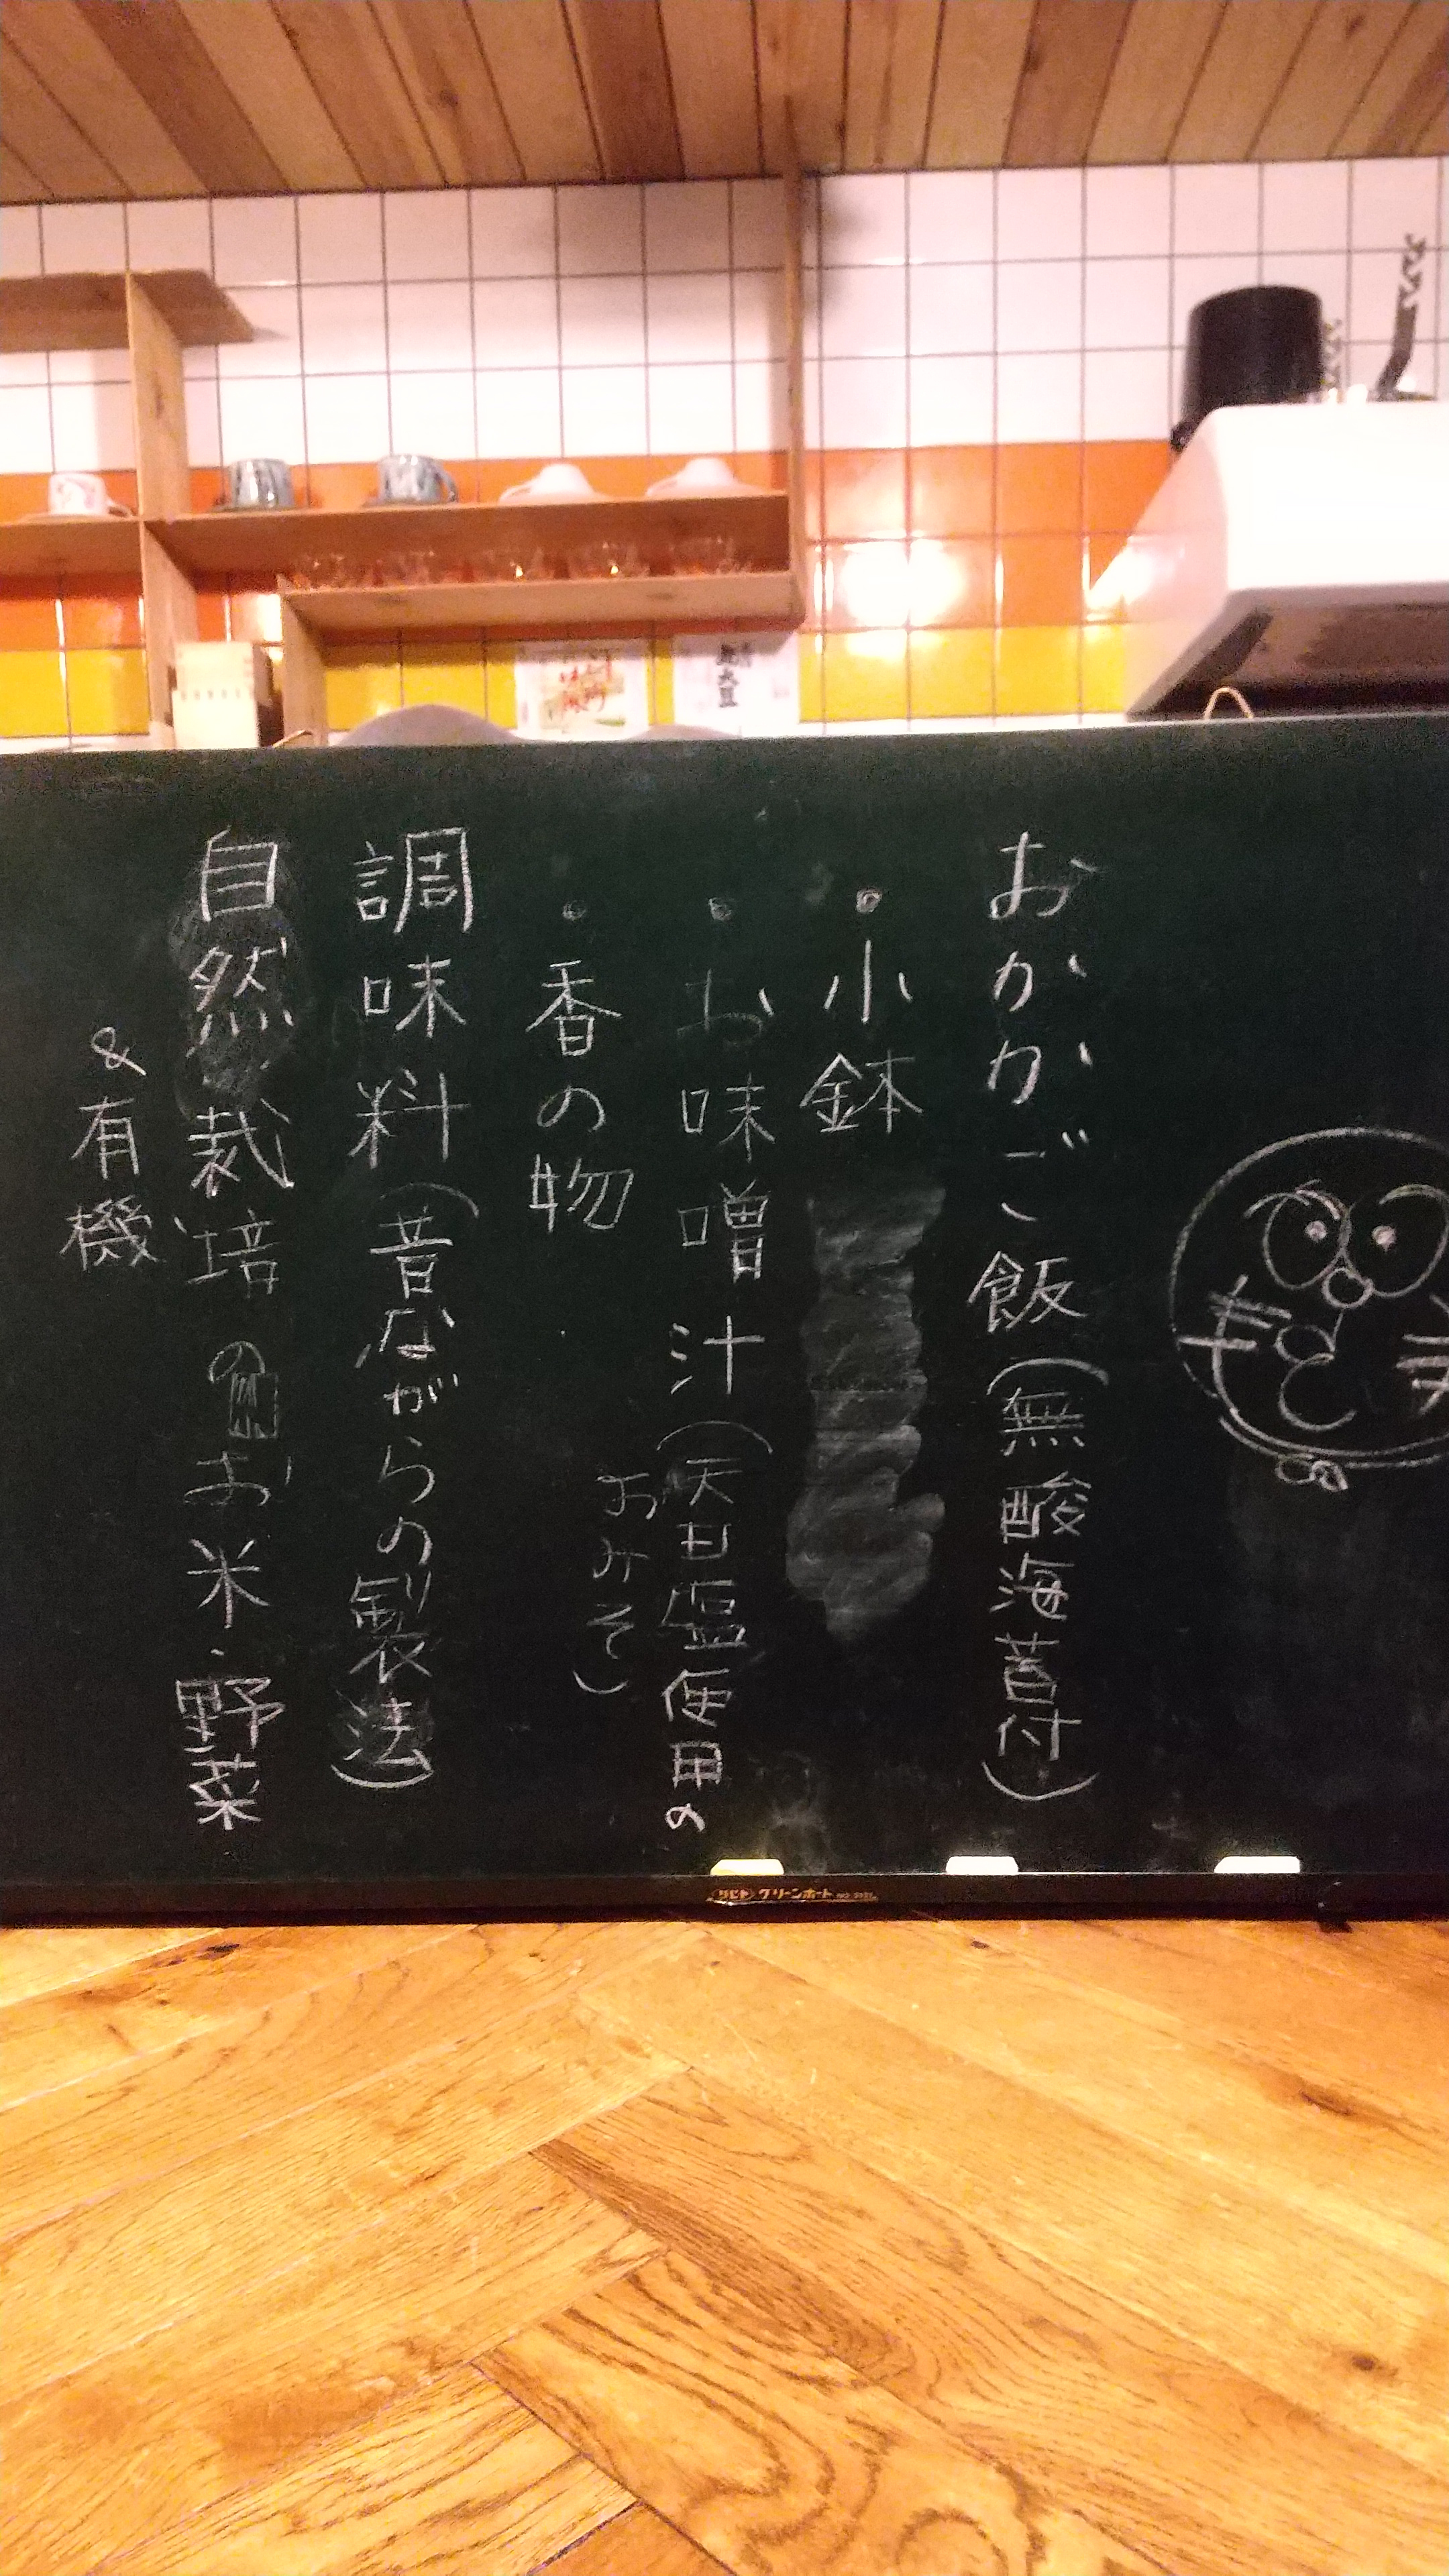 おかかご飯(無酸海苔付)
・小鉢
・お味噌汁(天日塩使用の
おみそ)
・香の物
調味料(昔ながらの製法)
自然栽培のお米・野菜
&有機
グリーンボード